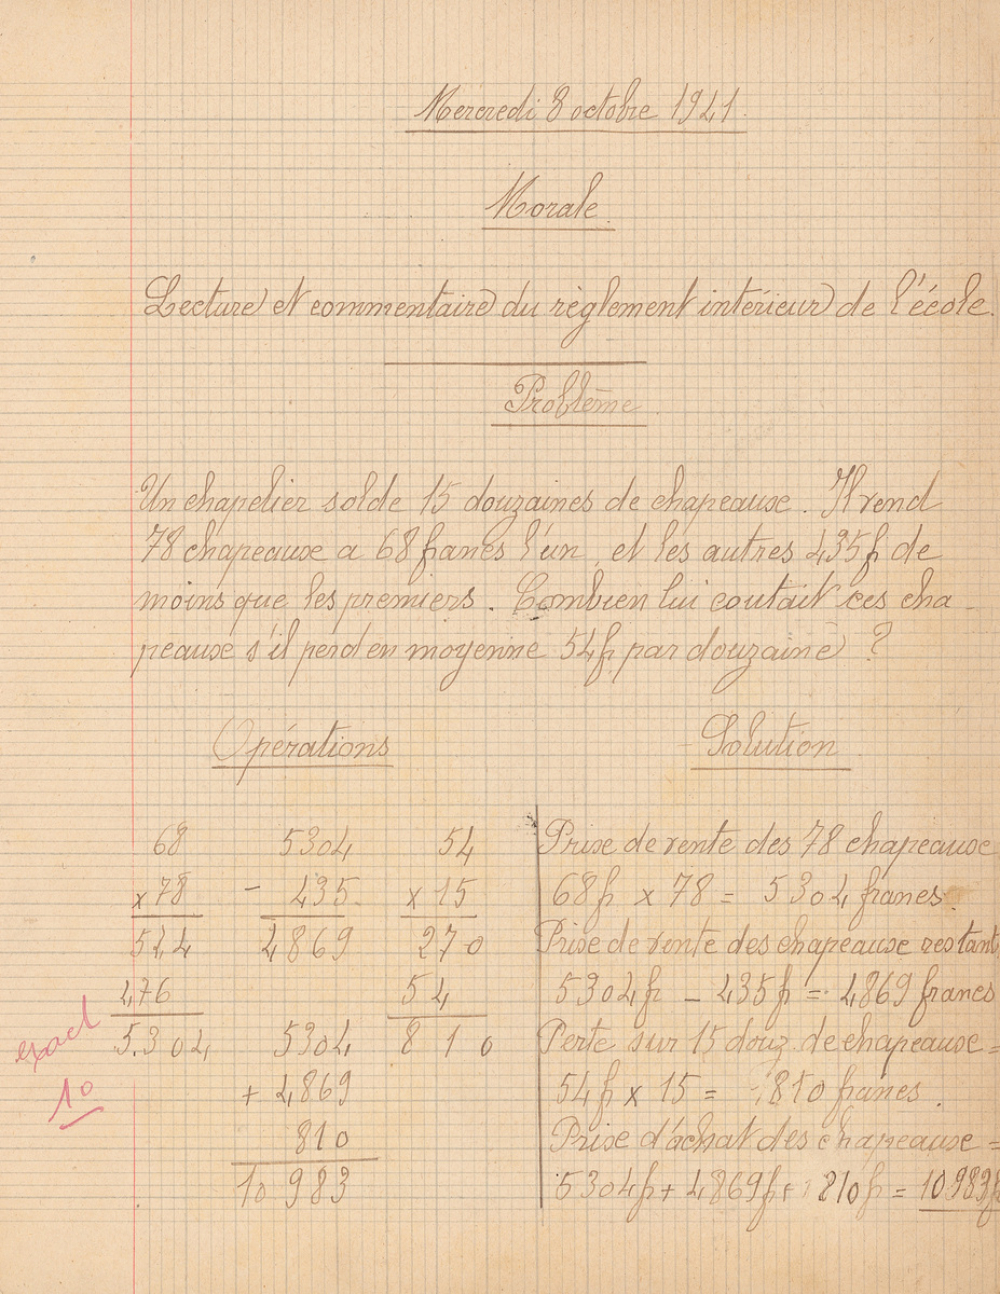 Mercredi 8 octobre 1941.
Morale.
Lecture et commentaire du règlement intérieur de l'école.
Problème.
Un chapelier solde 15 douzaines de chapeaux. Il vend
78 chapeaux a 68 francs l'un, et les autres 435f de
moins que les premiers. Combien lui coutait ces cha-
peaux s'il perd en moyenne 54f par douzaine ?
Opérations
68
x 78
544
476
5.304
5304
- 435
4869
54
x 15
270
54
810
5304
+ 4869
810
10 983
exact
10
Solution
Prix de vente des 78 chapeaux
68f x 78 = 5304 francs.
Prix de vente des chapeaux restant
5304f - 435f = 4869 francs
Perte sur 15 douz. de chapeaux =
54f x 15 = 810 francs.
Prix d'achat des chapeaux =
5304f + 4869f + 810f = 10983f